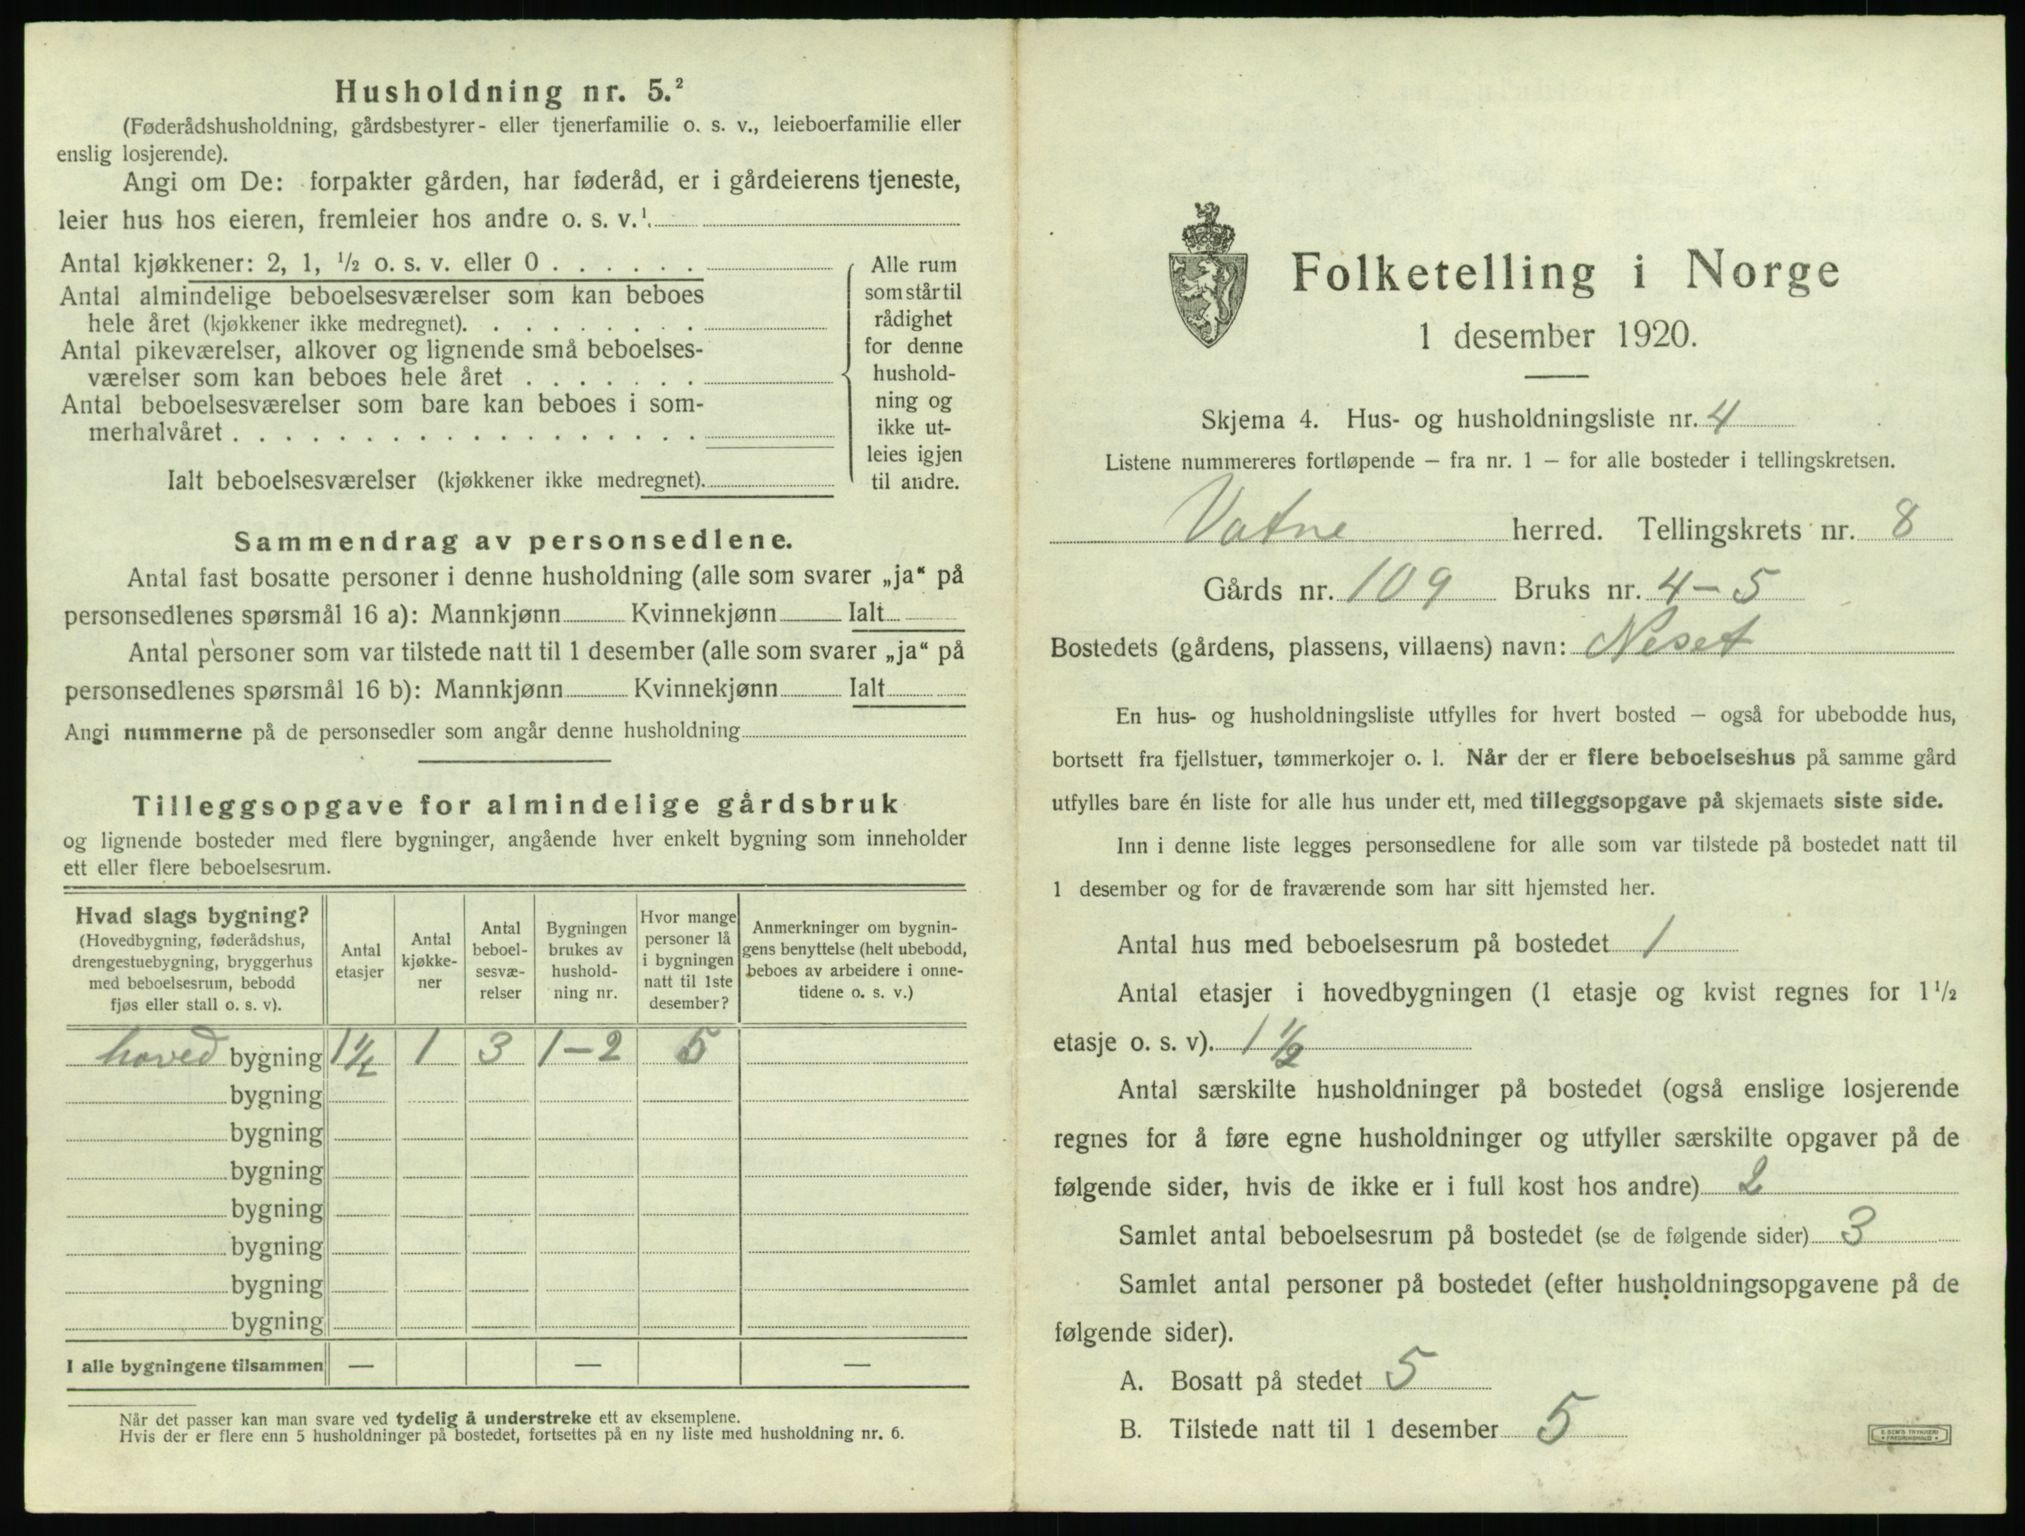 Husholdning nr. 5.²
(Føderådshusholdning, gårdsbestyrer- eller tjenerfamilie o. s. v., leieboerfamilie eller
enslig losjerende).
Angi om De: forpakter gården, har føderåd, er i gårdeierens tjeneste,
leier hus hos eieren, fremleier hos andre o. s. v.¹
Antal kjøkkener: 2, 1, ½ o. s. v. eller 0 . . . . . .
Antal almindelige beboelsesværelser som kan beboes
hele året (kjøkkener ikke medregnet). . . . . . . . . .
Antal pikeværelser, alkover og lignende små beboelses-
værelser som kan beboes hele året . . . . . . .
Antal beboelsesværelser som bare kan beboes i som-
merhalvåret . . . . . . . . . . . . . . . . . .
Ialt beboelsesværelser (kjøkkener ikke medregnet).
Alle rum
som står til
rådighet
for denne
hushold-
ning og
ikke ut-
leies igjen
til andre.
Sammendrag av personsedlene.
Antal fast bosatte personer i denne husholdning (alle som svarer „ja“ på
personsedlenes spørsmål 16 a): Mannkjønn Kvinnekjønn Ialt
Antal personer som var tilstede natt til 1 desember (alle som svarer „ja“ på
personsedlenes spørsmål 16 b): Mannkjønn Kvinnekjønn Ialt
Angi nummerne på de personsedler som angår denne husholdning
Tilleggsopgave for almindelige gårdsbruk
og lignende bosteder med flere bygninger, angående hver enkelt bygning som inneholder
ett eller flere beboelsesrum.
Hvad slags bygning?
(Hovedbygning, føderådshus,
drengestuebygning, bryggerhus
med beboelsesrum, bebodd
fjøs eller stall o. s. v).
Antal
etasjer
Antal
kjøkke-
ner
Antal
beboel-
sesvæ-
relser
Bygningen
brukes av
hushold-
ning nr.
Hvor mange
personer lå
i bygningen
natt til 1ste
desember?
Anmerkninger om bygnin-
gens benyttelse (helt ubebodd,
beboes av arbeidere i onne-
tidene o. s. v.)
hoved bygning 1½ 1 3 1-2 5
bygning
bygning
bygning
bygning
bygning
bygning
bygning
I alle bygningene tilsammen — — —
Når det passer kan man svare ved tydelig å understreke ett av eksemplene.
Hvis der er flere enn 5 husholdninger på bostedet, fortsettes på en ny liste med husholdning nr. 6.
Folketelling i Norge
1 desember 1920.
Skjema 4. Hus- og husholdningsliste nr. 4
Listene nummereres fortløpende – fra nr. 1 – for alle bosteder i tellingskretsen.
Vatne herred. Tellingskrets nr. 8
Gårds nr. 109 Bruks nr. 4-5
Bostedets (gårdens, plassens, villaens) navn: Neset
En hus- og husholdningsliste utfylles for hvert bosted – også for ubebodde hus,
bortsett fra fjellstuer, tømmerkojer o. l. Når der er flere beboelseshus på samme gård
utfylles bare én liste for alle hus under ett, med tilleggsopgave på skjemaets siste side.
Inn i denne liste legges personsedlene for alle som var tilstede på bostedet natt til
1 desember og for de fraværende som har sitt hjemsted her.
Antal hus med beboelsesrum på bostedet 1
Antal etasjer i hovedbygningen (1 etasje og kvist regnes for 1½
etasje o. s. v). 1½
Antal særskilte husholdninger på bostedet (også enslige losjerende
regnes for å føre egne husholdninger og utfyller særskilte opgaver på de
følgende sider, hvis de ikke er i full kost hos andre) 2
Samlet antal beboelsesrum på bostedet (se de følgende sider) 3
Samlet antal personer på bostedet (efter husholdningsopgavene på de
følgende sider).
A. Bosatt på stedet 5
B. Tilstede natt til 1 desember 5